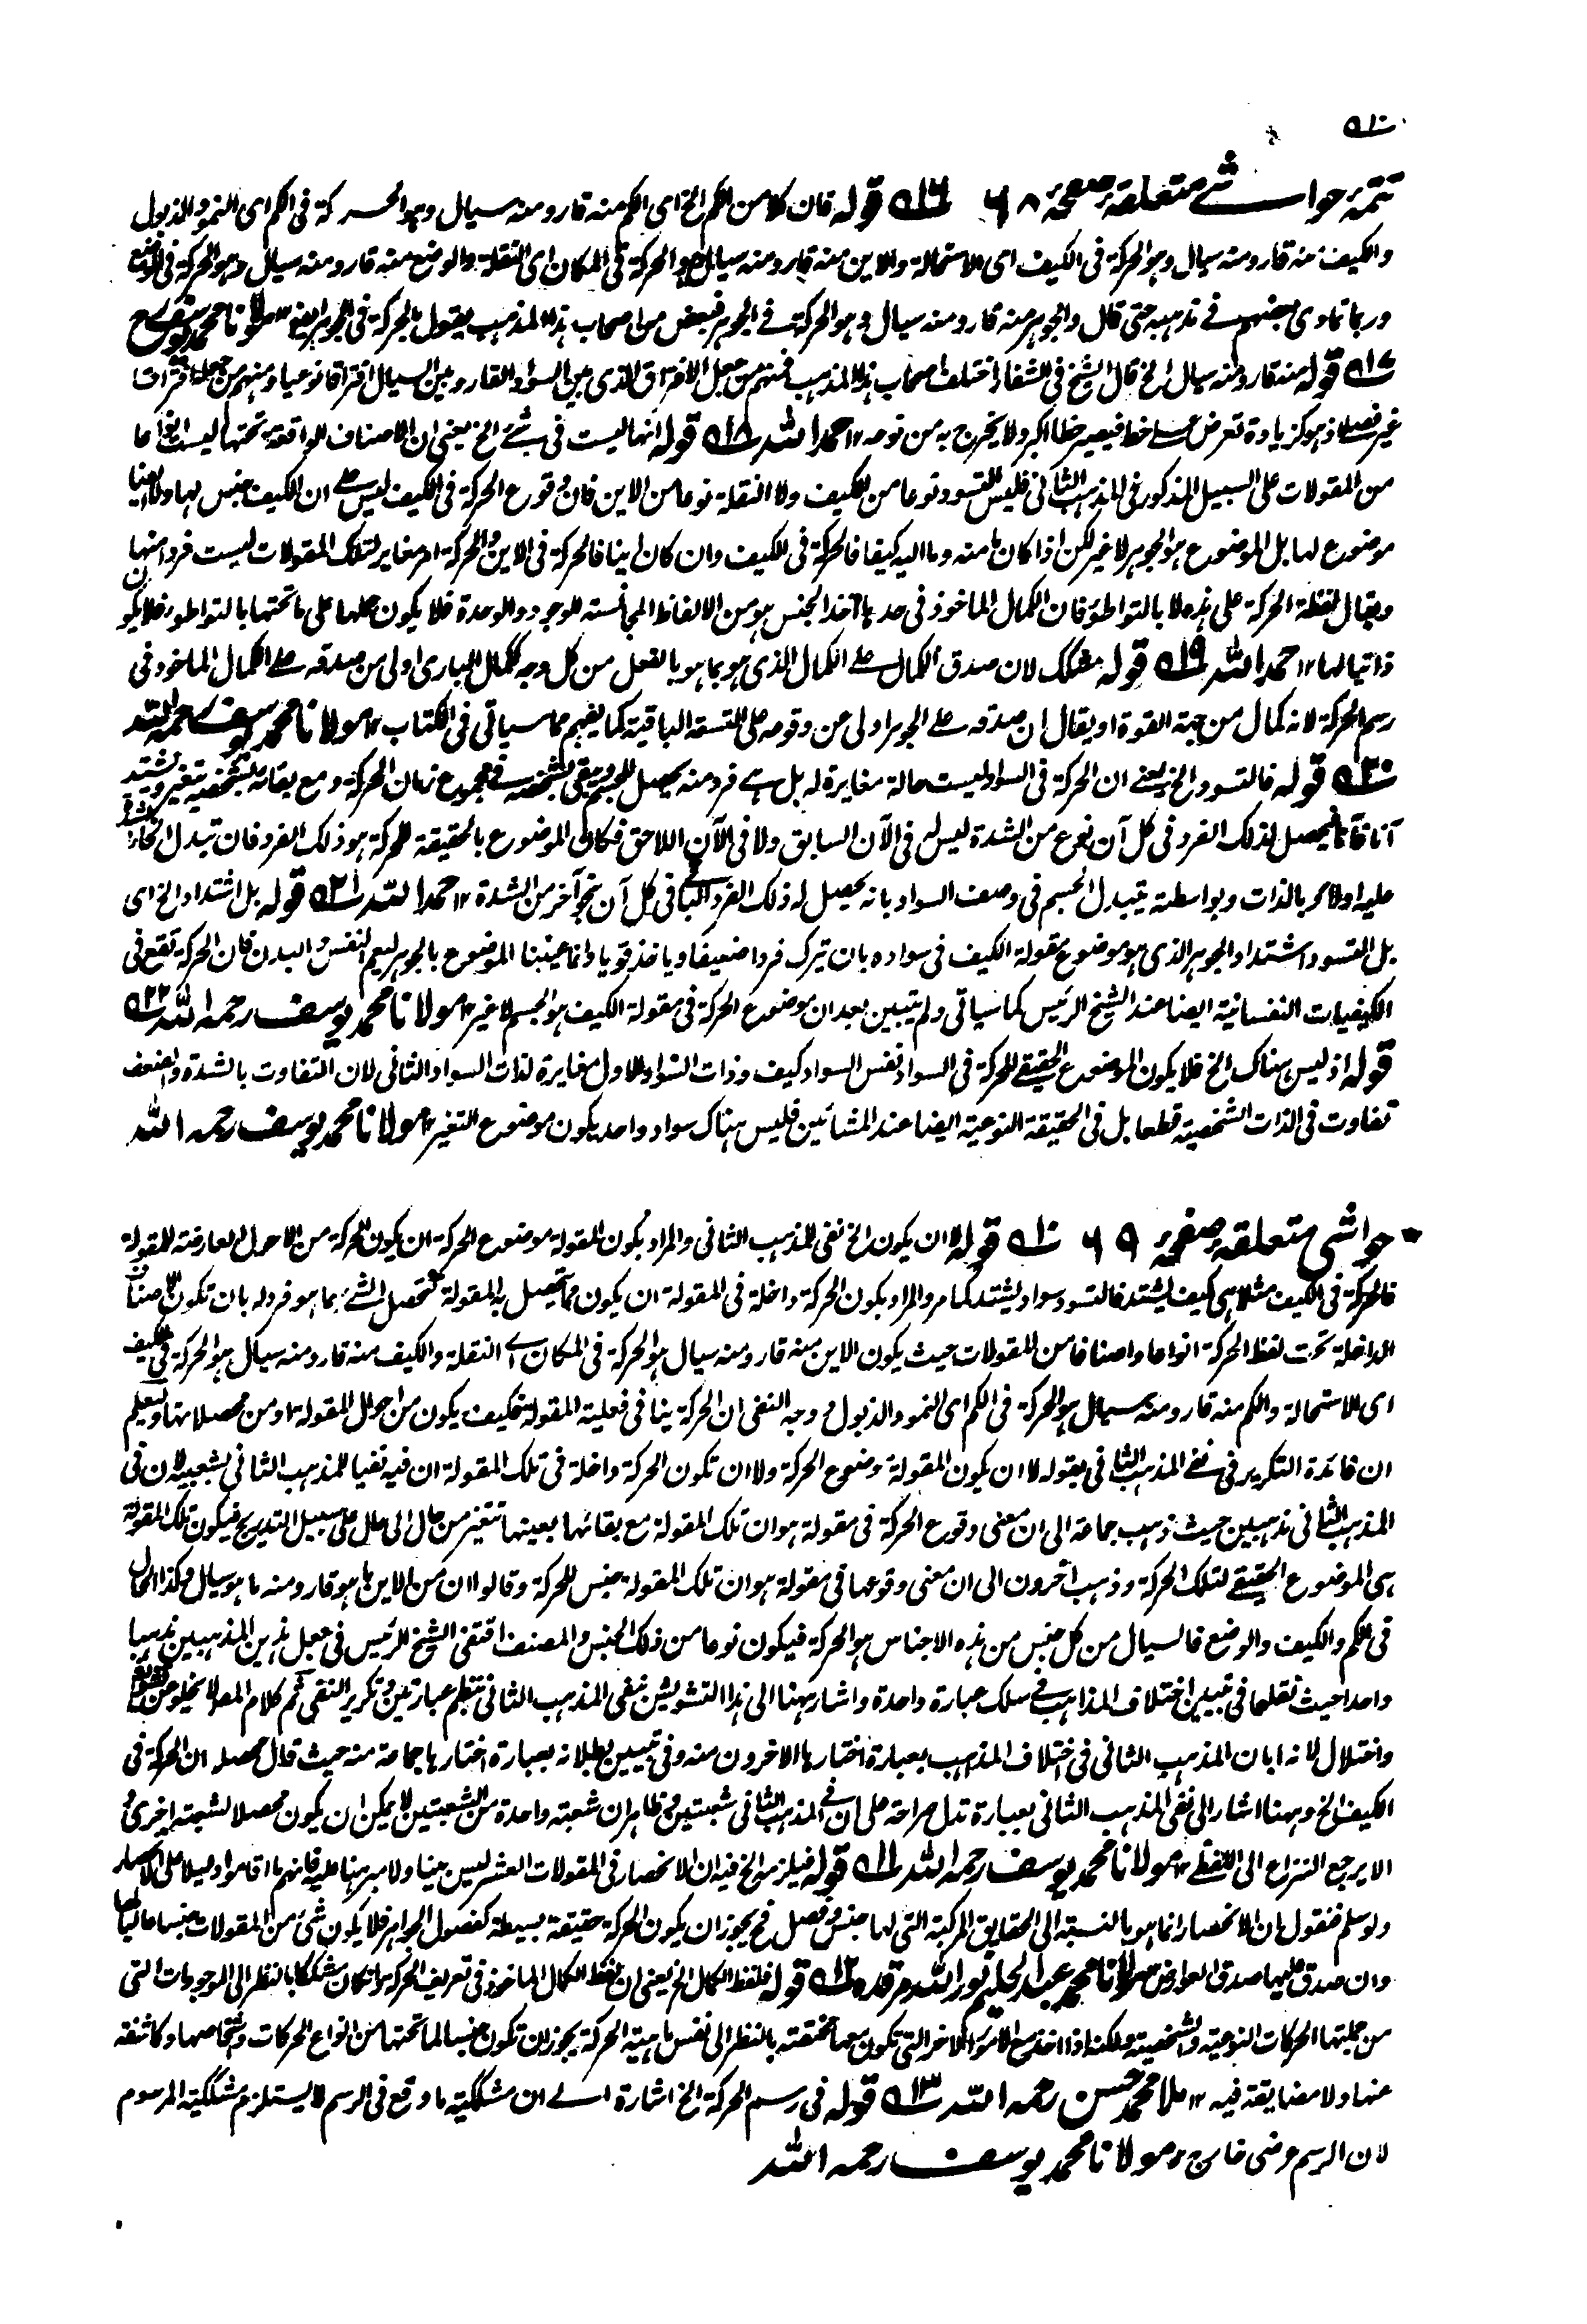 تتمہ حواشے متعلقہ صفحہ ۶۸ ۵۱۶ قوله فان كلا من الكم الخ اى الكم منه قار ومنه سيال وهو الحركة فى الكم اى النمو والذبول
والكيف منه قار ومنه سيال وهو الحركة فى الكيف اى الاستحالة والاين منه قار ومنه سيال هو الحركة فى المكان اى النقلة والوضع منه قار ومنه سيال وهو الحركة فى الوضع
وربما تمادى بعضهم فے مذهبه حتى قال والجوهر منه قار ومنه سيال وهو الحركة فے الجوهر فبعض من اصحاب هذا المذهب يقول بالحركة فى الجوهر ايضا ۱۲ مولانا محمد يوسف رح
۵۱۷ قوله منه قار ومنه سيال الخ قال الشيخ فى الشفاء اختلف اصحاب هذا المذهب فمنهم من جعل الافتراق الذى بين السواد القار وبين السيال افتراقا نوعيا ومنهم من جعله افتراقا
غير فصلى اذ هو كزيادة تعرض على خط فيصير خطا اكبر ولا يخرج به من نوعه ۱۲ حمد الله ۵۱۸ قوله انها ليست فى شئ الخ يعنى ان الاصناف الواقعة تحتها ليست انواعا
من المقولات على السبيل المذكور فى المذهب الثانى فليس التسود نوعا من الكيف ولا النقلة نوعا من الاين فان وقوع الحركة فى الكيف ليس على ان الكيف جنس لها ولا ايضا
موضوع لها بل الموضوع هو الجوهر لا غير لكن اذا كان ما منه وما اليه كيفا فالحركة فى الكيف وان كان اينا فالحركة فى الاين والحركة امر مغاير لتلك المقولات ليست فردا منها
ويقال لفظة الحركة على هذه لا بالتواطؤ فان الكمال الماخوذ فى حدها آخذ الجنس هو من الالفاظ المجانسة للوجود والوحدة فلا يكون حملها على ما تحتها بالتواطؤ فلا يكون
ذاتيا لها ۱۲ حمد الله ۵۱۹ قوله مشكك لان صدق الكمال على الكمال الذى هو بما هو بالفعل من كل وجه ككمال البارى اولى من صدقه على الكمال الماخوذ فى
رسم الحركة لانه كمال من جهة القوة او يقال ان صدقه على الجوهر اولى من وقوعه على التسعة الباقية كما يفهم مما سياتى فى الكتاب ۱۲ مولانا محمد يوسف رحمه الله
۵۲۰ قوله فالتسود الخ يعنے ان الحركة فى السواد ليست حالة مغايرة له بل هے فرد منه يحصل للجسم ويبقى بشخصه فے مجموع زمان الحركة ومع بقائه بشخصه يتغير ويشتد
آنا فآنا فيحصل لذلك الفرد فى كل آن نوع من الشدة ليس له فى الآن السابق ولا فى الآن اللاحق فكان الموضوع بالحقيقة للحركة هو ذلك الفرد فان تبدل انحاء الشدة
عليه اولا وبالذات وبواسطته يتبدل الجسم فى وصف السواد بانه يحصل له ذلك الفرد الباقى كل آن بنحو آخر من الشدة ۱۲ حمد الله ۵۲۱ قوله بل اشتداد الخ اى
بل التسود اشتداد الجوهر الذى هو موضوع مقولة الكيف فى سواده بان يترك فردا ضعيفا وياخذ قويا وانما عبرنا الموضوع بالجوهر ليعم النفس والبدن فان الحركة تقع فى
الكيفيات النفسانية ايضا عند الشيخ الرئيس كما سياتى ولم يتبين بعد ان موضوع الحركة فى مقولة الكيف هو الجسم لا غير ۱۲ مولانا محمد يوسف رحمه الله ۵۲۲
قوله اذ ليس هناك الخ فلا يكون الموضوع الحقيقے للحركة فى السواد نفس السواد كيف وذات السواد الاول مغايرة لذات السواد الثانى لان التفاوت بالشدة والضعف
تفاوت فى الذات الشخصية قطعا بل فى الحقيقة النوعية ايضا عند المشائين فليس هناك سواد واحد يكون موضوع التغير ۱۲ مولانا محمد يوسف رحمه الله
حواشى متعلقہ صفحہ ۶۹ ۵۱۰ قوله لا ان يكون الخ نفى للمذهب الثانى والمراد بكون المقولة موضوع الحركة ان يكون الحركة من الاحوال العارضة للمقولة
فالحركة فى الكيف مثلا هى كيف يشتد فالتسود سواد يشتد كما مر والمراد بكون الحركة داخلة فى المقولة ان يكون مما تحصل به المقولة كتحصل الشئ بما هو فرد له بان تكون الاصناف
الداخلة تحت لفظ الحركة انواعا واصنافا من المقولات حيث يكون الاين منه قار ومنه سيال هو الحركة فى المكان اے النقلة والكيف منه قار ومنه سيال هو الحركة فى الكيف
اى الاستحالة والكم منه قار ومنه سيال هو الحركة فى الكم اى النمو والذبول و وجه النفى ان الحركة ينافى فعلية المقولة فكيف يكون من احوال المقولة او من محصلاتها وليعلم
ان فائدة التكرير فى نفے المذهب الثانى بقوله لا ان يكون المقولة موضوع الحركة ولا ان تكون الحركة داخلة فى تلك المقولة ان فيه نفيا للمذهب الثانى بشعبيه لان فى
المذهب الثانى مذهبين حيث ذهب جماعة الى ان معنى وقوع الحركة فى مقولة هو ان تلك المقولة مع بقائها بعينها تتغير من حال الى حال على سبيل التدريج فيكون تلك المقولة
هى الموضوع الحقيقے لتلك الحركة وذهب آخرون الى ان معنى وقوعها فى مقولة هو ان تلك المقولة جنس للحركة وقالوا ان من الاين ما هو قار ومنه ما هو سيال وكذا الحال
فى الكم والكيف والوضع فالسيال من كل جنس من هذه الاجناس هو الحركة فيكون نوعا من ذلك الجنس والمصنف اقتفى الشيخ الرئيس فى جعل هذين المذهبين مذهبا
واحدا حيث نقلهما فى تبيين اختلاف المذاهب فے سلك عبارة واحدة واشار ههنا الى هذا التشويش بنفى المذهب الثانى بنظم عبارتين وتكرير النفى ثم كلام المص لا يخلو عن
واختلال لانه ابان المذهب الثانى فى اختلاف المذهب بعبارة اختارها الآخرون منه وفى تبيين بطلانه بعبارة اختارها جماعة منه حيث قال محصله ان الحركة فى
الكيف الخ وههنا اشار الى نفى المذهب الثانى بعبارة تدل صراحة على ان فے المذهب الثانى شعبتين وظاهر ان شعبة واحدة من الشعبتين لا يمكن ان يكون محصلا لشعبة اخرى
الا يرجع النزاع الى اللفظے ۱۲ مولانا محمد يوسف رحمه الله ۵۱۱ قوله فيلزم الخ فيه ان الانحصار فى المقولات العشر ليس بينا ولا مبرهنا عليه فانهم ما اقاموا دليلا على الانحصار
ولو سلم فنقول ان الانحصار انما هو بالنسبة الى الحقايق المركبة التى لها جنس وفصل فح يجوز ان يكون الحركة حقيقة بسيطة كفصول الجواهر فلا يكون شئ من المقولات جنسا عاليا لها
وان صدق عليها صدق العوارض ۱۲ مولانا محمد عبد الحليم نور الله مرقده ۵۱۲ قوله فلفظ الكمال الخ يعنى ان لفظ الكمال الماخوذ فى تعريف الحركة وان كان مشككا بالنظر الى الموجودات التى
من جملتها الحركات النوعية والشخصية ولكنه اذا اخذ مع الامور الاخر التى تكون معها مختصة بالنظر الى نفس ماهية الحركة يجوز ان تكون جنسا لما تحتها من انواع الحركات واشخاصها وكاشفة
عنها ولا مضايقة فيه ۱۲ ملا محمد حسن رحمه الله ۵۱۳ قوله فى رسم الحركة الخ اشارة الے ان مشككية ما وقع فى الرسم لا يستلزم مشككية المرسوم
لان الرسم عرضى خارج ۱۲ مولانا محمد يوسف رحمه الله